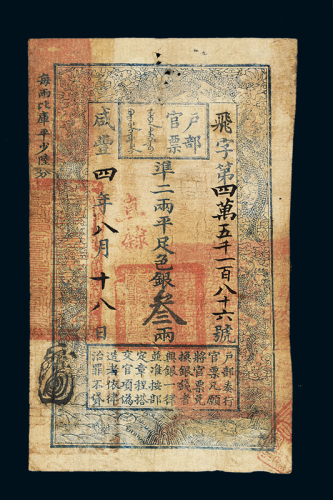 户部
官票
飛字第四萬五千一百八十六號
準二兩平足色銀叁兩
咸豐
四年八月十八日
每兩比庫平少陸分
户部奏行
官票凡願
將官票兌
換銀錢者
與銀一律
並准按部
定章程搭
交官項偽
造者依律
治罪不貸
直隸